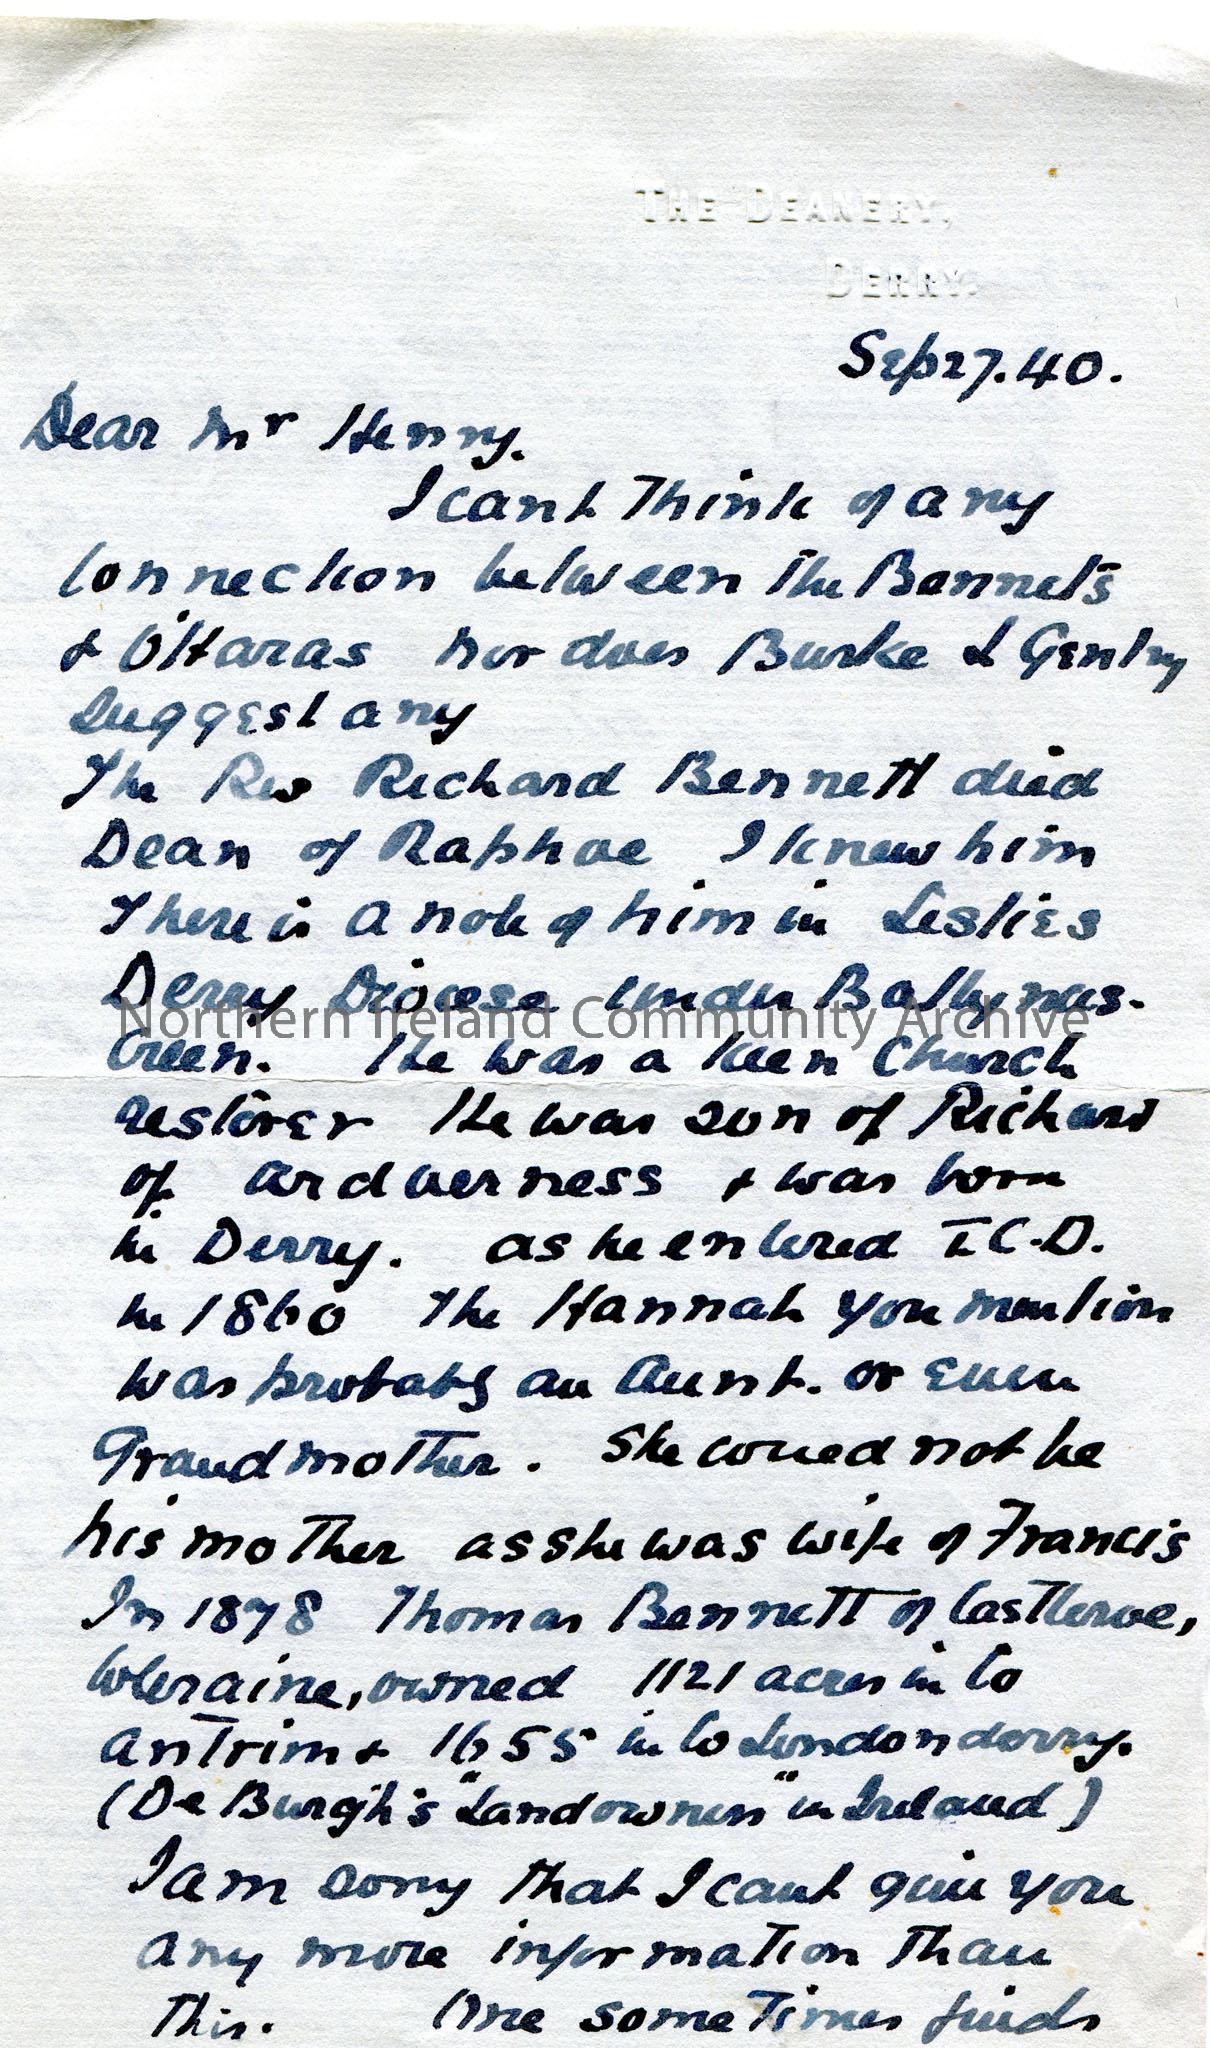 THE DEANERY,
DERRY.
Sep 27. 40.
Dear Mr Henry.
I cant Think of any
Connection between The Bennets
& O'Haras nor does Burke L Gentry
Suggest any
The Rev Richard Bennett died
Dean of Raphoe I knew him
There is a note of him in Leslies
Derry Diocese under Ballynas-
Creen. He was a keen Church
restorer He was son of Richard
of Ardverness & was born
in Derry. as he entered T.C.D.
in 1860 The Hannah you mention
was probably an Aunt. or even
Grandmother. She coued not be
his mother as she was wife of Francis
In 1878 Thomas Bennett of Castleroe,
Coleraine, owned 1121 acres in Co
Antrim & 1655 in Co Londonderry.
(De Burgh's "Landowners" in Ireland)
I am sorry that I cant give you
any more information than
This. One some Times finds
Northern Ireland Community Archive